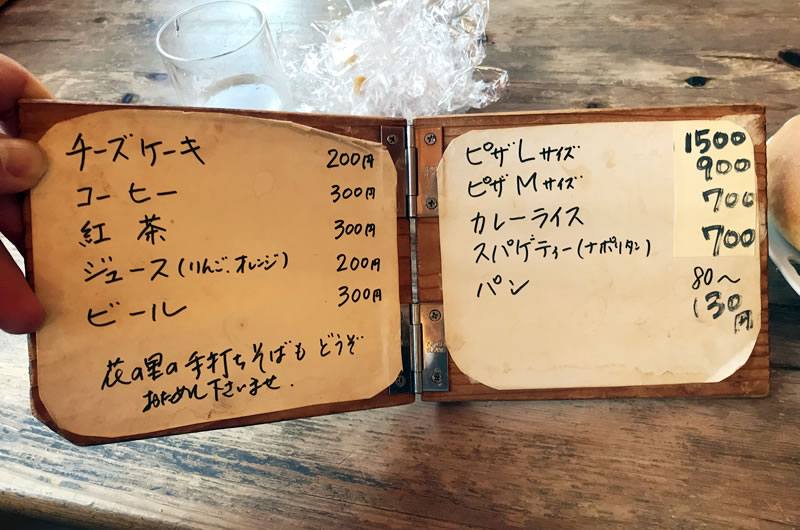 チーズケーキ 200円
コーヒー 300円
紅茶 300円
ジュース(りんご、オレンジ) 200円
ビール 300円
花の里の手打ちそばも どうぞ
おためし下さいませ.
ピザ Lサイズ 1500
ピザ Mサイズ 900
カレーライス 700
スパゲティー(ナポリタン) 700
パン 80〜
130円